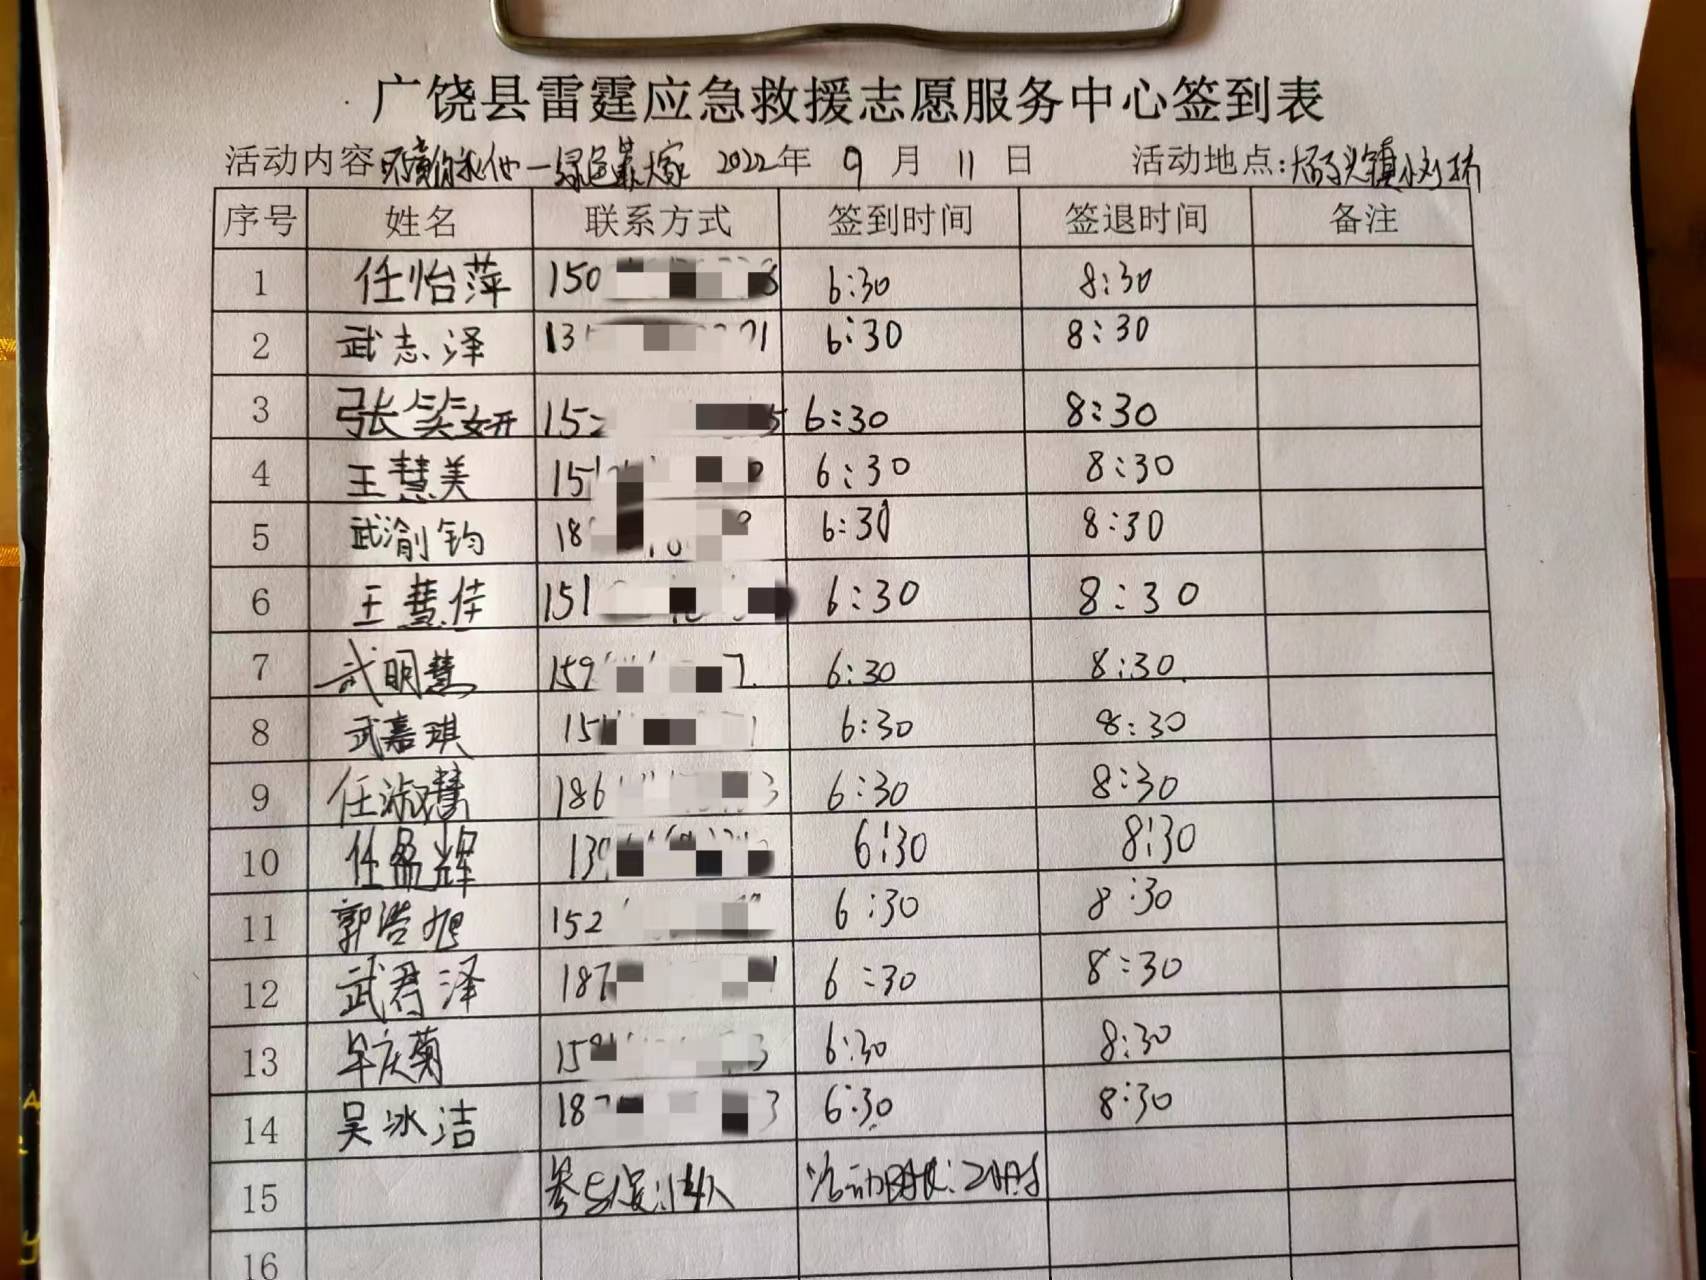 广饶县雷霆应急救援志愿服务中心签到表
活动内容:环境你我他一绿色靠大家 2022年 9月 11日 活动地点:镇小刘桥
序号 姓名 联系方式 签到时间 签退时间 备注
1 任怡萍 150 8 6:30 8:30
2 武志泽 13 71 6:30 8:30
3 张笑妍 152 5 6:30 8:30
4 王慧美 151 6:30 8:30
5 武渝钧 18 6:30 8:30
6 王慧佳 151 6:30 8:30
7 武明慧 159 7 6:30 8:30
8 武嘉琪 15 6:30 8:30
9 任淑慧 186 3 6:30 8:30
10 任盈辉 139 6:30 8:30
11 郭浩旭 152 6:30 8:30
12 武君泽 187 1 6:30 8:30
13 牟庆菊 159 3 6:30 8:30
14 吴冰洁 187 3 6:30 8:30
15 参与人员:14人 活动时长:2小时
16